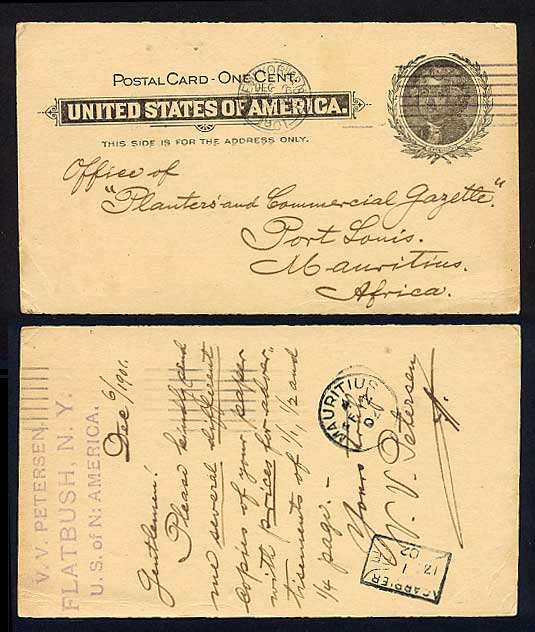 POSTAL CARD - ONE CENT.
UNITED STATES OF AMERICA.
THIS SIDE IS FOR THE ADDRESS ONLY.
DEC
1901
Office of
"Planters' and Commercial Gazette."
Port Louis.
Mauritius.
Africa.
V.V. PETERSEN.
FLATBUSH, N.Y.
U.S. of N: AMERICA.
Dec 6/1901.
Gentlemen!
Please kindly send
me several different
copies of your paper
with prices for adver-
tisements of 1/1, 1/2 and
1/4 page. -
Yours
V. V. Petersen
MAURITIUS
FE
02
CARRIER
1
12 02